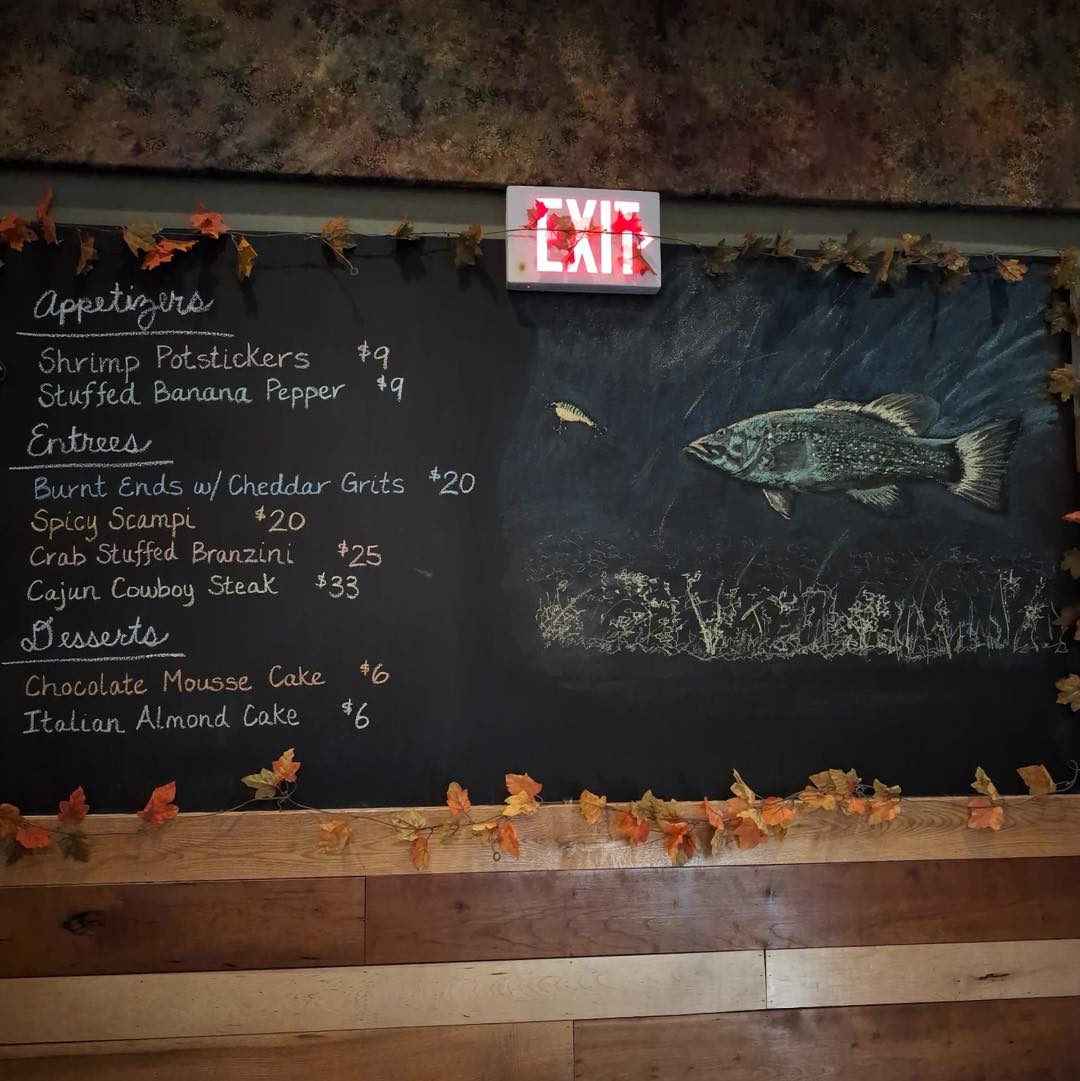 EXIT
Appetizers
Shrimp Potstickers $9
Stuffed Banana Pepper $9
Entrees
Burnt Ends w/ Cheddar Grits $20
Spicy Scampi $20
Crab Stuffed Branzini $25
Cajun Cowboy Steak $33
Desserts
Chocolate Mousse Cake $6
Italian Almond Cake $6